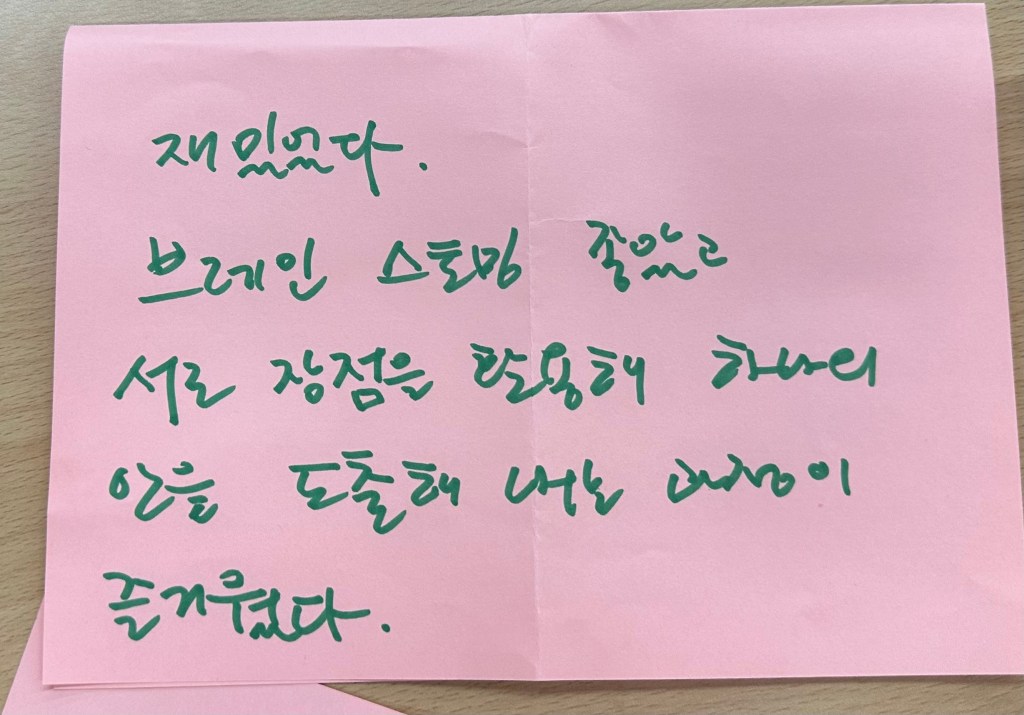 재밌었다.
브레인 스토밍 좋았고
서로 장점을 활용해 하나의
안을 도출해 내는 과정이
즐거웠다.